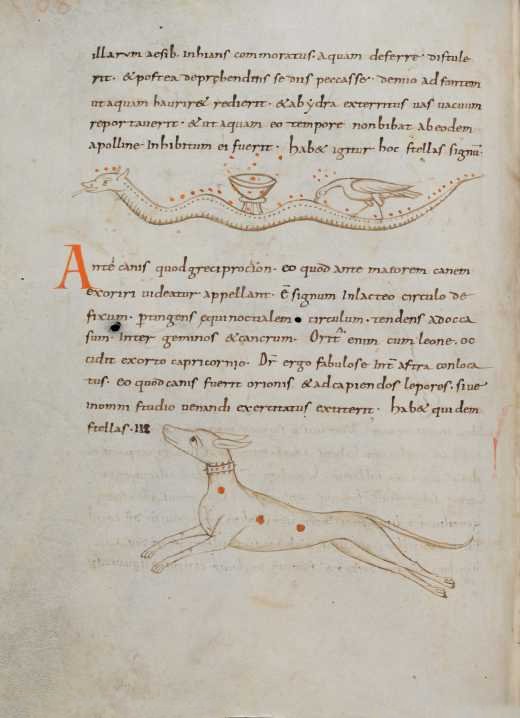 illarum aesib. inhians commoratus. aquam deferre distule
rit. & postea deprehendens se diis peccasse. denuo ad fontem
ut aquam haurir& redierit. & ab ydra exterritus uas uacuum
reportauerit. & ut aquam eo tempore non bibat ab eodem
apolline inhibitum ei fuerit. hab& igitur hoc stellas signū.
Ante canis quod greci procion. eo quod ante maiorem canem
exoriri uideatur appellant. Ē signum in lacteo circulo de
fixum. ptingens equinoctialem circulum. tendens ad occa
sum. inter geminos & cancrum. Orit᷑ enim cum leone. oc
cidit exorto capricornio. Dr̄ ergo fabulose int̄ astra conloca
tus. eo quod canis fuerit orionis & ad capiendos lepores. siue
in omni studio uenandi exercitatus extiterit. hab& quidem
stellas. III